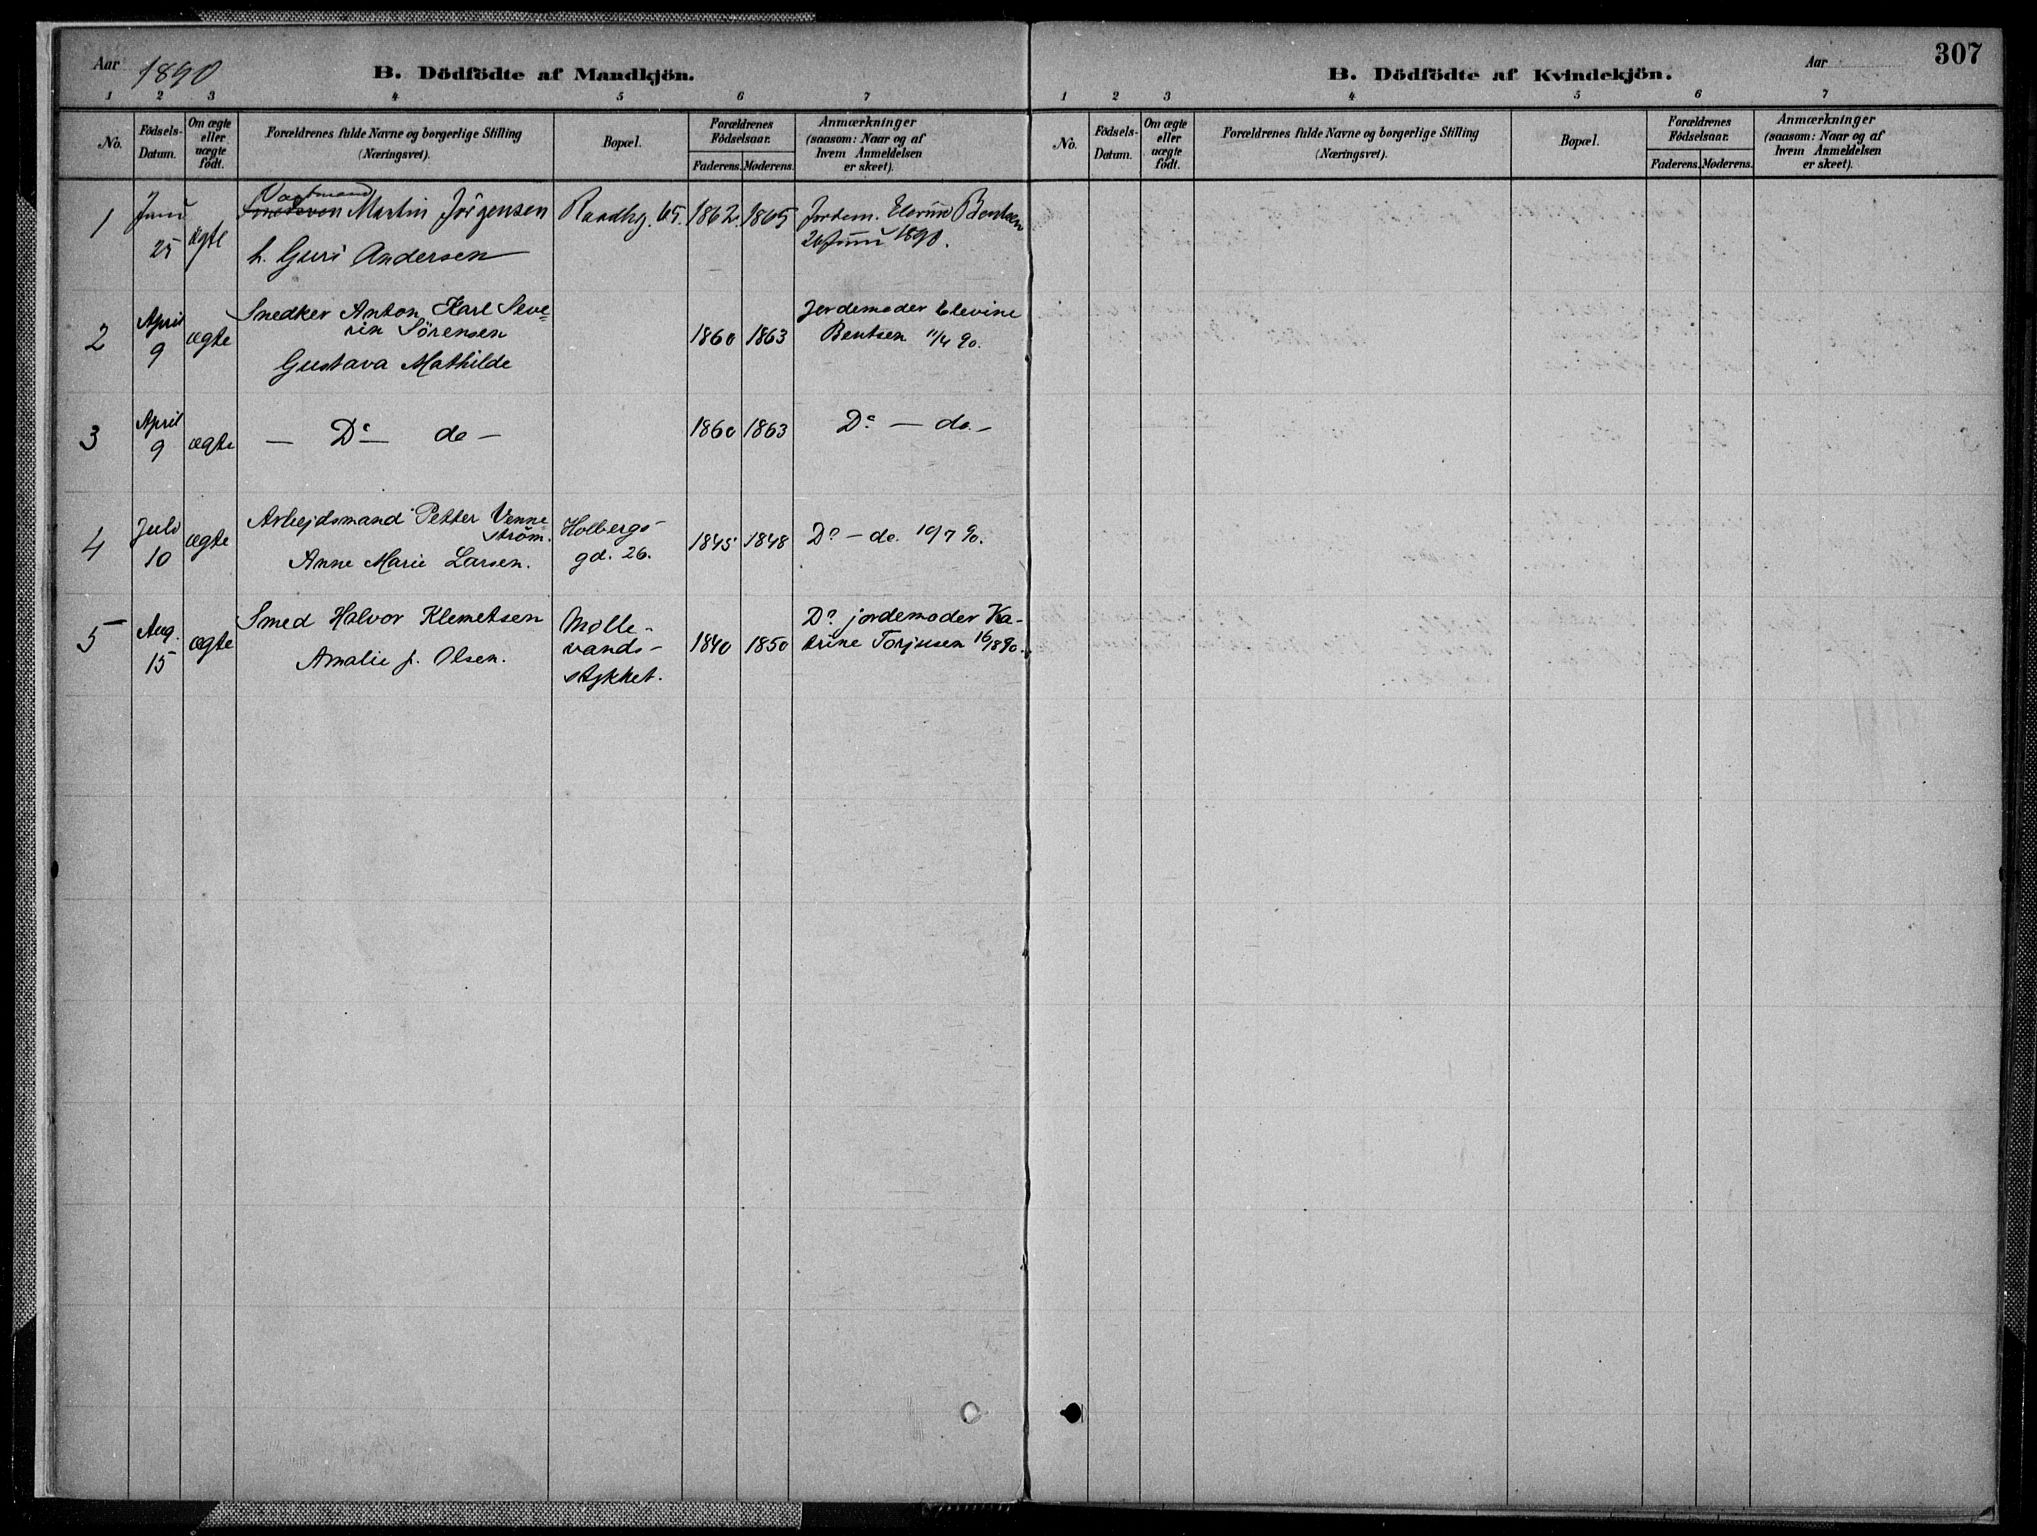 Aar 1890
B. Dödfödte af Mandkjön.
1 2 3 4 5 6 7
No.
Födsels-Datum.
Om ægte eller uægte födt.
Forældrenes fulde Navne og borgerlige Stilling (Næringsvei).
Bopæl.
Forældrenes Födselsaar.
Faderens. Moderens.
Anmærkninger (saasom: Naar og af hvem Anmeldelsen er skeet).
1
25
ægte
Martin Jörgensen
h. Guri Andersen
Raadhg. 65.
1862
1865
Jordem. Elevine Bentsen
1890.
2
April 9
ægte
Snedker Anton Karl Seve=
rin Sörensen
Gustava Mathilde
1860
1863
Jordemoder Elevine
Bentsen 11/4 90.
3
April 9
ægte
— Do — do —
1860
1863
Do — do. —
4
Juli 10
ægte
Arbejdsmand Petter Venne
ström.
Anne Marie Larsen.
Holbergs-
gd. 26.
1845
1848
Do — do. 10/7 90.
5
Aug. 15
ægte
Smed Halvor Klemetsen
Amalie f. Olsen.
Mølle-
vands-
stykket.
1840
1850
Do jordemoder Ka-
trine Torjusen 16/8 90.
307
Aar
B. Dödfödte af Kvindekjön.
1 2 3 4 5 6 7
No.
Födsels-Datum.
Om ægte eller uægte födt.
Forældrenes fulde Navne og borgerlige Stilling (Næringsvei).
Bopæl.
Forældrenes Födselsaar.
Faderens. Moderens.
Anmærkninger (saasom: Naar og af hvem Anmeldelsen er skeet).